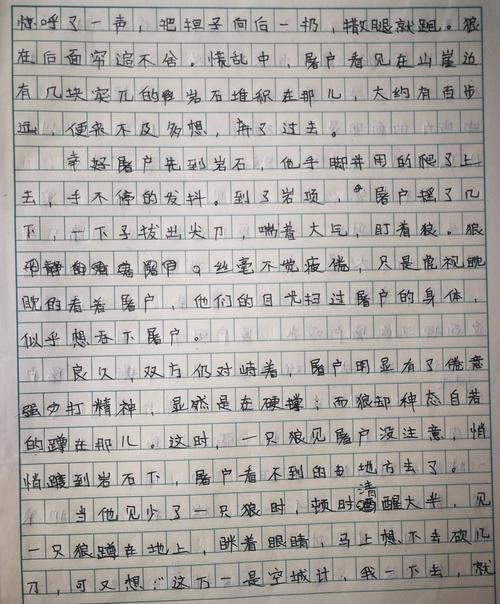 惊呼了一声，把担子向后一扔，撒腿就跑。狼
在后面穷追不舍。慌乱中，屠户看见在山崖边
有几块突兀的岩石堆积在那儿，大约有百步
远，便来不及多想，奔了过去。
幸好屠户先到岩石，他手脚并用的爬了上
去，手不停的发抖。到了岩顶，屠户摇了几
下，一下子拔出尖刀，喘着大气，盯着狼。狼
丝毫不觉疲倦，只是虎视眈
眈的看着屠户，他们的目光扫过屠户的身体，
似乎想吞下屠户。
良久，双方仍对峙着，屠户明显有了倦意
强力打精神，显然是在硬撑；而狼却神态自若
的蹲在那儿。这时，一只狼见屠户没注意，悄
悄踱到岩石下，屠户看不到的地方去了。
当他见少了一只狼时，顿时清醒大半，见
一只狼蹲在地上，眯着眼睛，马上想下去砍几
刀，可又想："这万一是空城计，我一下去，就